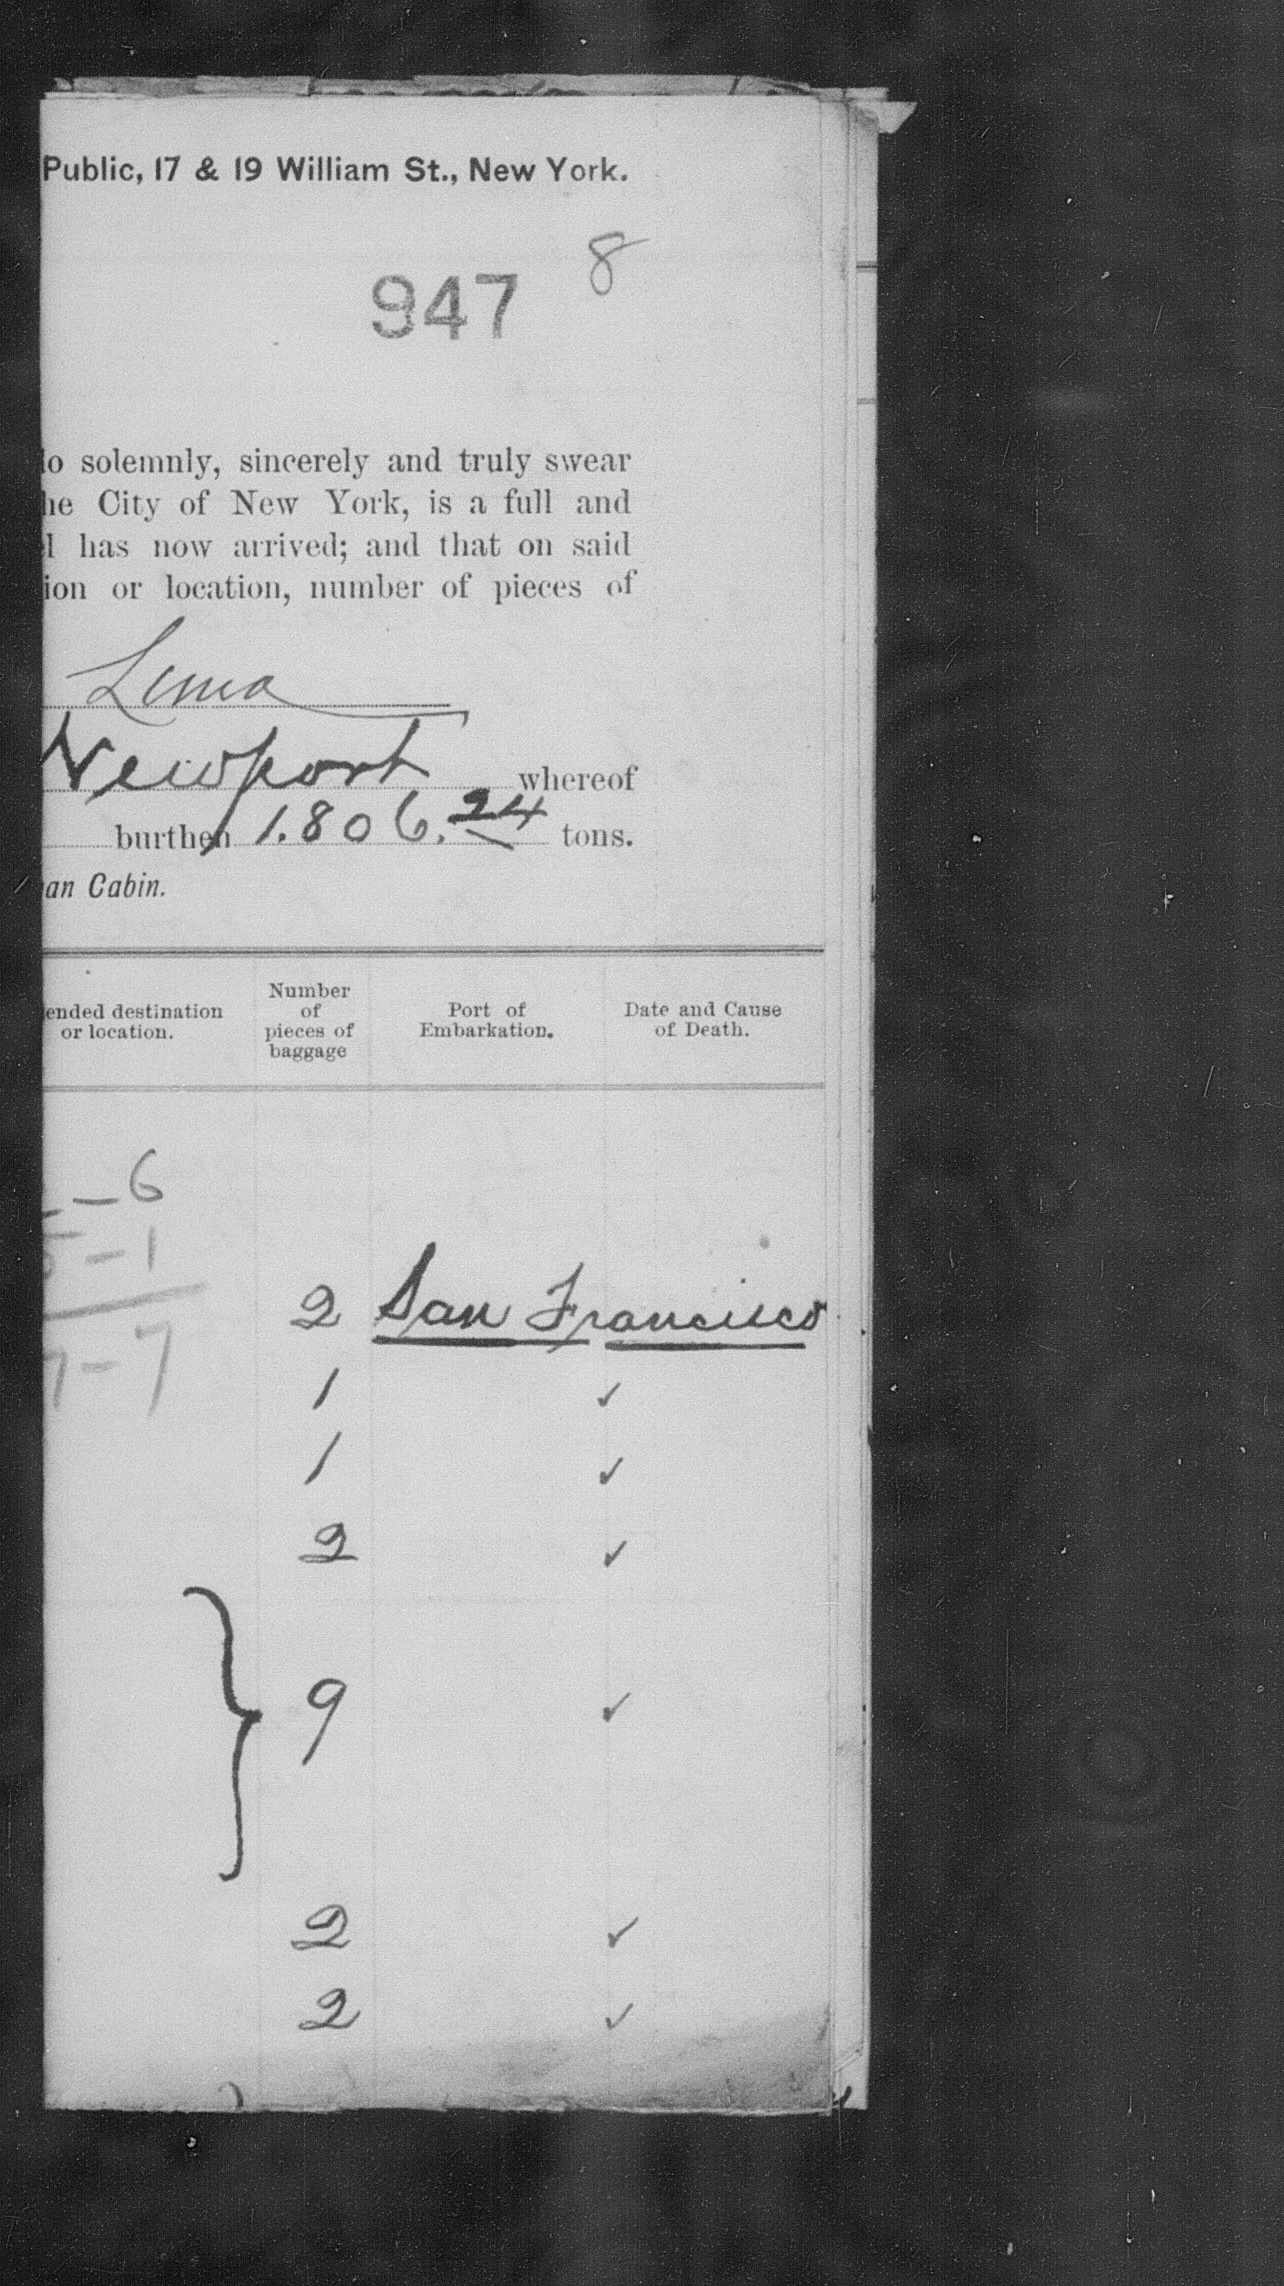 Public, 17 & 19 William St., New York.
8
947
lo solemnly, sincerely and truly swear
he City of New York, is a full and
l has now arrived; and that on said
ion or location, number of pieces of
Lima
Newport whereof
burthen 1.806.24 tons.
an Cabin.
ended destination or location.
Number of pieces of baggage
Port of Embarkation.
Date and Cause of Death.
– 6
5 – 1
2 San Francisco
7 – 7
1 ✓
1 ✓
2 ✓
} 9 ✓
2 ✓
2 ✓